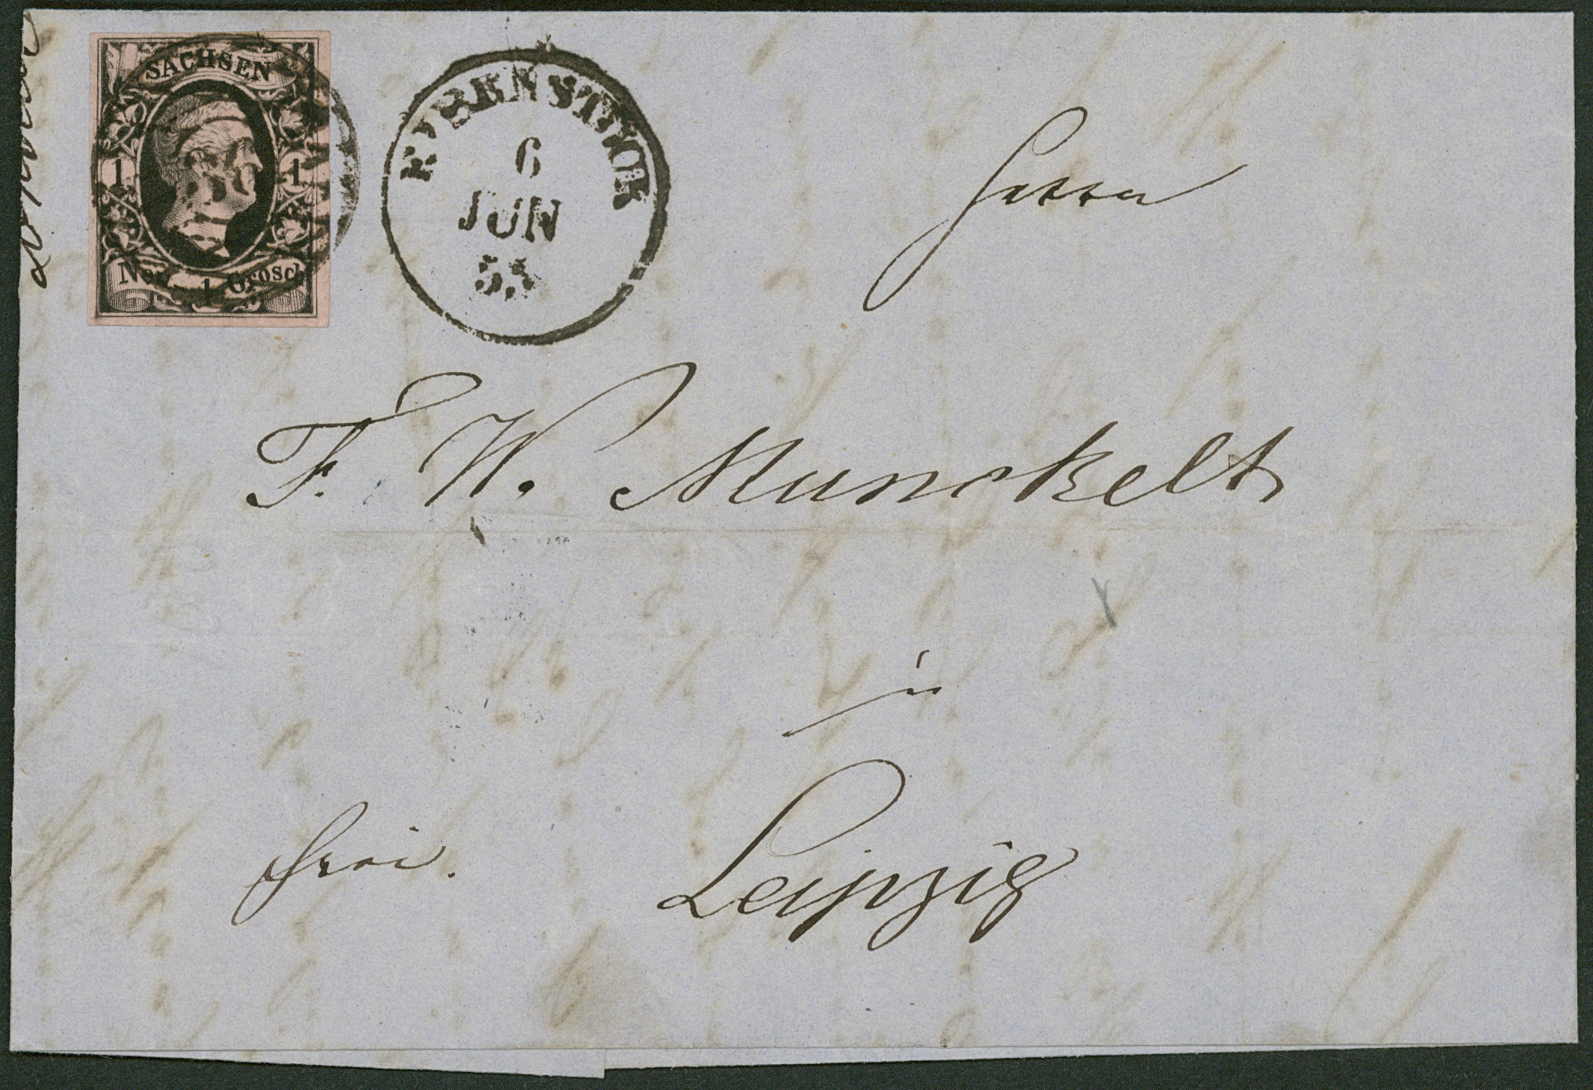 SACHSEN
1 1
Neu-Grosch.
1
6
JUN
53
Herrn
F. W. Munckelt
in
Leipzig
frei.